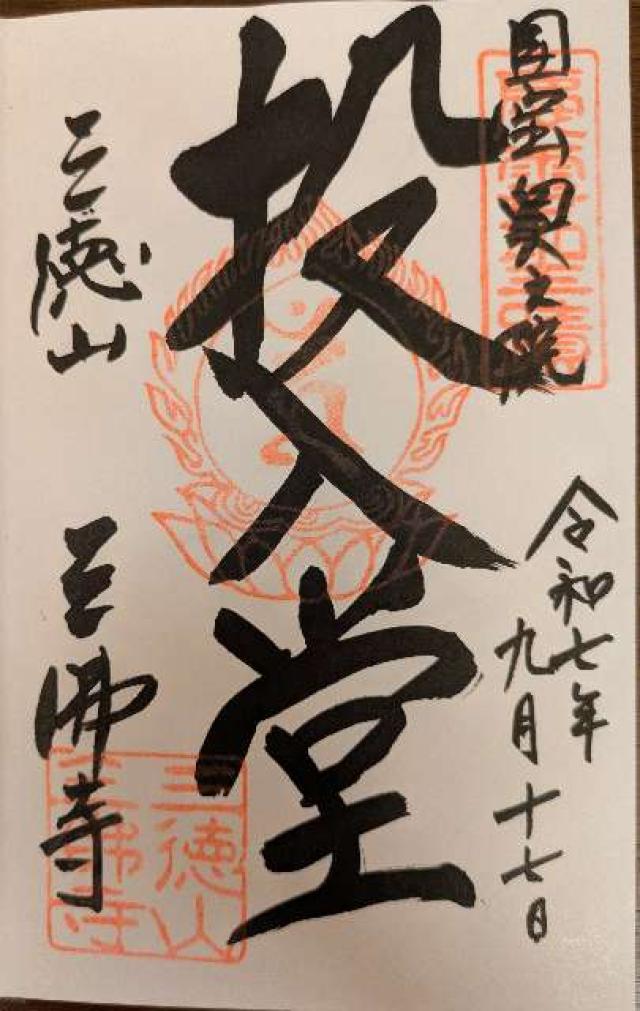 国宝奥之院
令和七年
九月十七日
投入堂
三徳山
三佛寺
三徳山
三佛寺